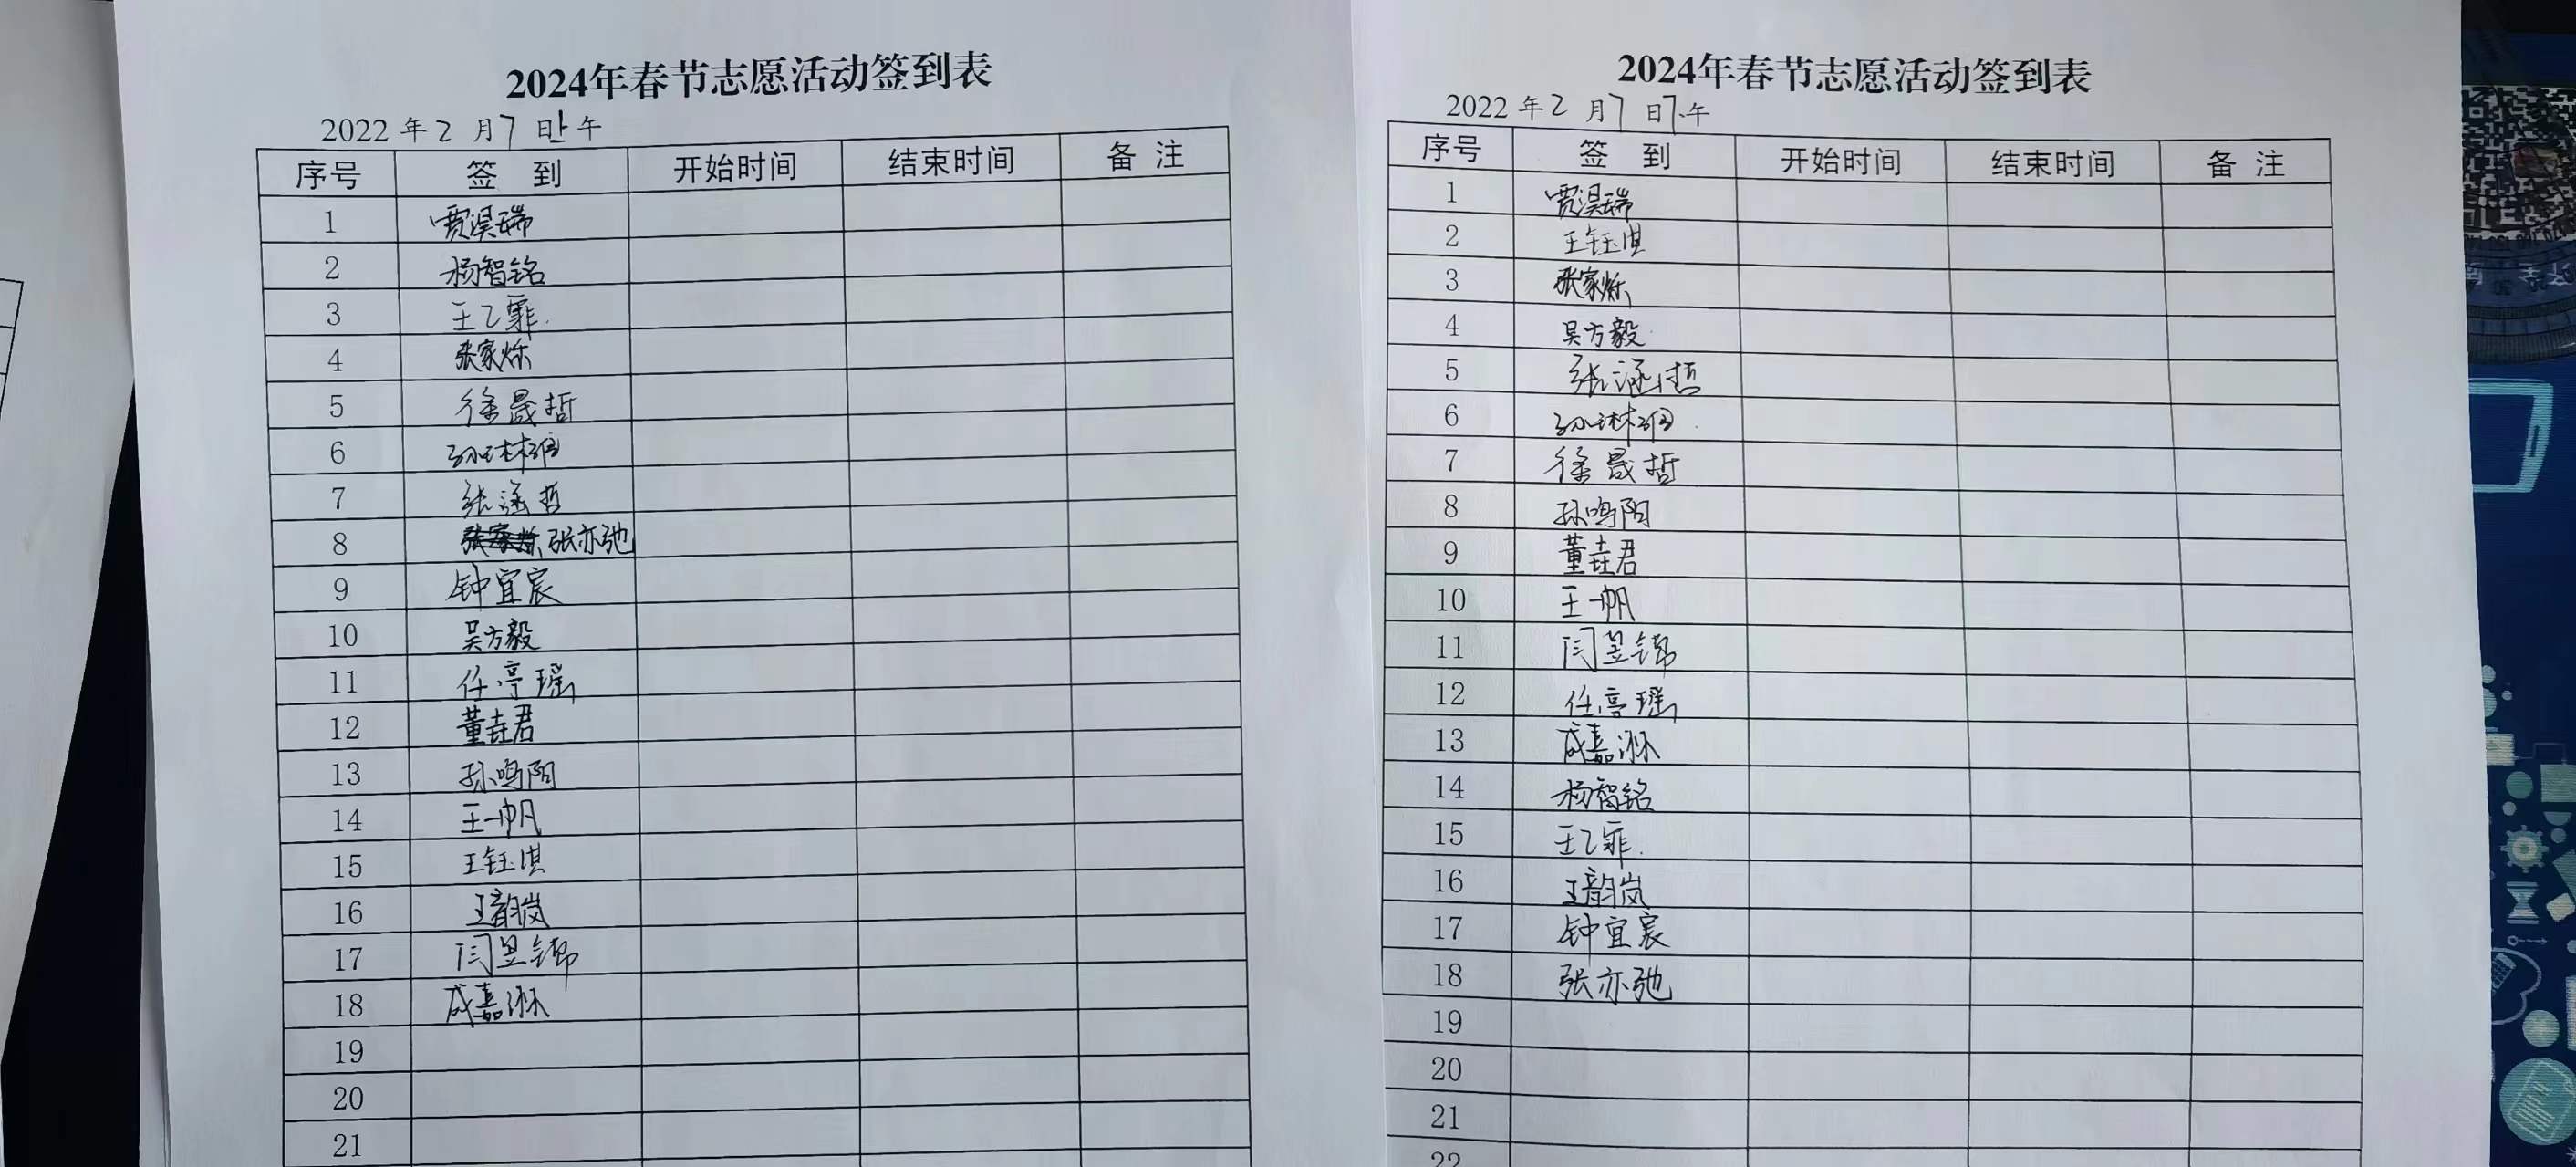 2024年春节志愿活动签到表
2022 年 2 月 7 日上午
序号 签 到 开始时间 结束时间 备 注
1 贾淏瑞
2 杨智铭
3 王乙霏
4 张家烁
5 徐晟哲
6 孙琳
7 张涵哲
8 张亦弛
9 钟宜宸
10 吴方毅
11 任亭瑶
12 董垚君
13 孙鸣阳
14 王一帆
15 王钰淇
16 王韵岚
17 闫昱锦
18 咸嘉淋
19
20
21
2024年春节志愿活动签到表
2022 年 2 月 7 日下午
序号 签 到 开始时间 结束时间 备 注
1 贾淏瑞
2 王钰淇
3 张家烁
4 吴方毅
5 张涵哲
6 孙琳
7 徐晟哲
8 孙鸣阳
9 董垚君
10 王一帆
11 闫昱锦
12 任亭瑶
13 咸嘉淋
14 杨智铭
15 王乙霏
16 王韵岚
17 钟宜宸
18 张亦弛
19
20
21
22